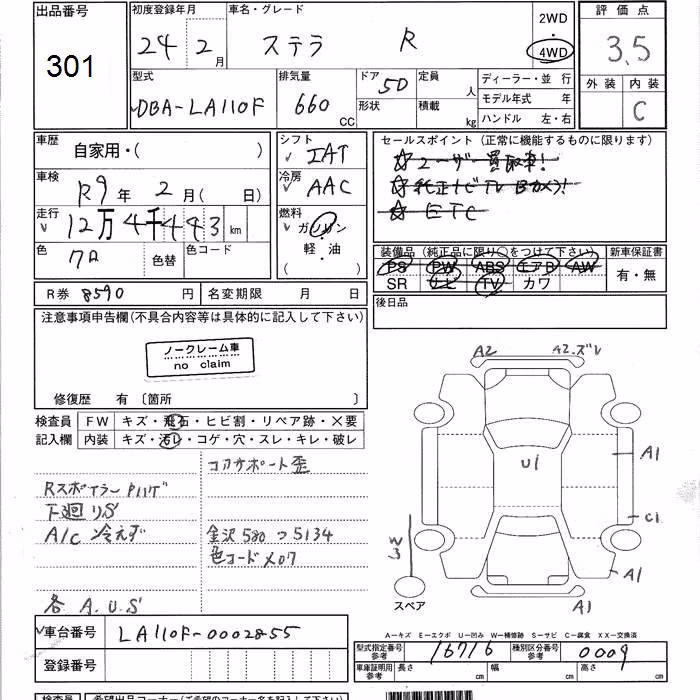 出品番号
301
初度登録年月
24 2 月
車名・グレード
ステラ R
2WD
4WD
評価点
3.5
外装 内装
C
型式
DBA-LA110F
排気量
660 CC
ドア 5D
形状
定員 人
積載 kg
ディーラー・並 行
モデル年式 年
ハンドル 左・右
車歴
自家用・( )
車検
R9 年 2 月( 日)
走行
12万4千443 km
色
色替
色コード
シフト
IAT
冷房
AAC
燃料
ガソリン
軽・油
セールスポイント (正常に機能するものに限ります)
☆ユーザー買取車!
☆純正ナビTV Bカメラ!
☆ETC
装備品 (純正品に限り○をつけて下さい)
新車保証書
PS PW ABS エアB AW
SR ナビ TV カワ
有・無
後日品
R券 8590 円
名変期限 月 日
注意事項申告欄(不具合内容等は具体的に記入して下さい)
ノークレーム車
no claim
修復歴 有 〔箇所 〕
検査員 FW キズ・飛石・ヒビ割・リペア跡・×要
記入欄 内装 キズ・汚レ・コゲ・穴・スレ・キレ・破レ
コアサポート歪
Rスポイラー Pハゲ
下廻りS
A/C 冷えず
金沢 580 つ 5134
色コード X07
各 A.U.S
A2
A2.ズレ
U1
A1
C1
W3
A1
A1
スペア
A−キズ E−エクボ U−凹み W−補修跡 S−サビ C−腐食 XX−交換済
車台番号 LA110F-0002855
登録番号
型式指定番号 参考 16716
種別区分番号 参考 0009
車庫証明用 参考 長さ cm 幅 cm 高さ cm
検査員
希望出品コーナー